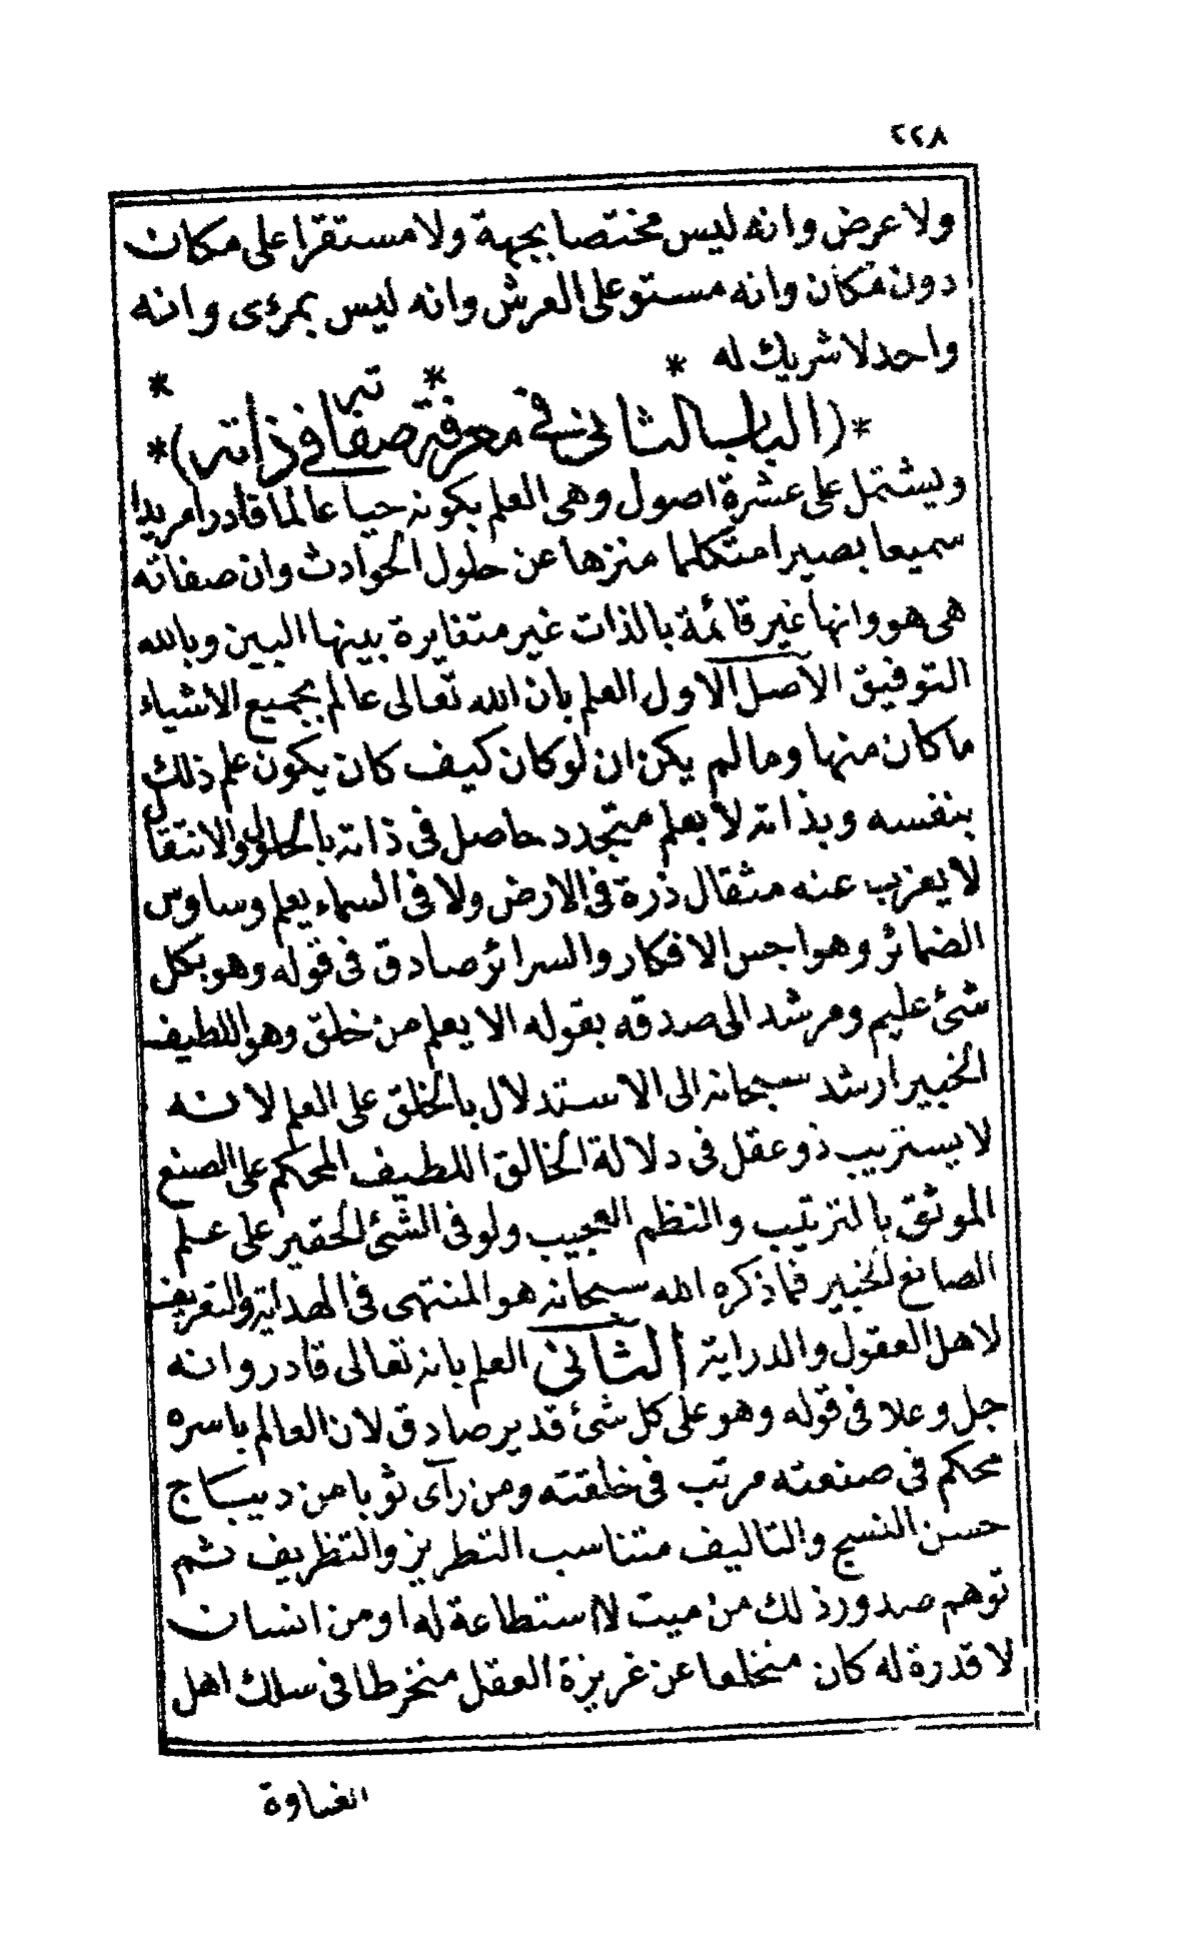 ٢٢٨
ولا عرض وانه ليس مختصا بجهة ولا مستقرا على مكان
دون مكان وانه مستو على العرش وانه ليس بمرءى وانه
واحد لا شريك له * * *
*(الباب الثانى فى معرفة صفاته فى ذاته)*
ويشتمل على عشرة اصول وهى العلم بكونه حيا عالما قادرا مريدا
سميعا بصيرا متكلما منزها عن حلول الحوادث وان صفاته
هى هو وانها غير قائمة بالذات غير متغايرة بينها البين وبالله
التوفيق الاصل الاول العلم بان الله تعالى عالم بجميع الاشياء
ما كان منها وما لم يكن ان لو كان كيف كان يكون علم ذلك
بنفسه وبذاته لا بعلم متجدد حاصل فى ذاته بالحلول والانتقال
لا يعزب عنه مثقال ذرة فى الارض ولا فى السماء يعلم وساوس
الضمائر وهواجس الافكار والسرائر صادق فى قوله وهو بكل
شئ عليم ومرشد الى صدقه بقوله الا يعلم من خلق وهو اللطيف
الخبير ارشد سبحانه الى الاستدلال بالخلق على العلم لانه
لا يستريب ذو عقل فى دلالة الخالق اللطيف المحكم على الصنع
الموثق بالترتيب والنظم العجيب ولو فى الشئ الحقير على علم
الصانع الخبير فما ذكره الله سبحانه هو المنتهى فى الهداية والتعريف
لاهل العقول والدراية الثانى العلم بانه تعالى قادر وانه
جل وعلا فى قوله وهو على كل شئ قدير صادق لان العالم باسره
محكم فى صنعته مرتب فى خلقته ومن رآى ثوبا من ديباج
حسن النسج والتاليف متناسب التطريز والتظريف ثم
توهم صدور ذلك من ميت لا استطاعة له او من انسان
لا قدرة له كان منخلعا عن غريزة العقل منخرطا فى سلك اهل
الغباوة